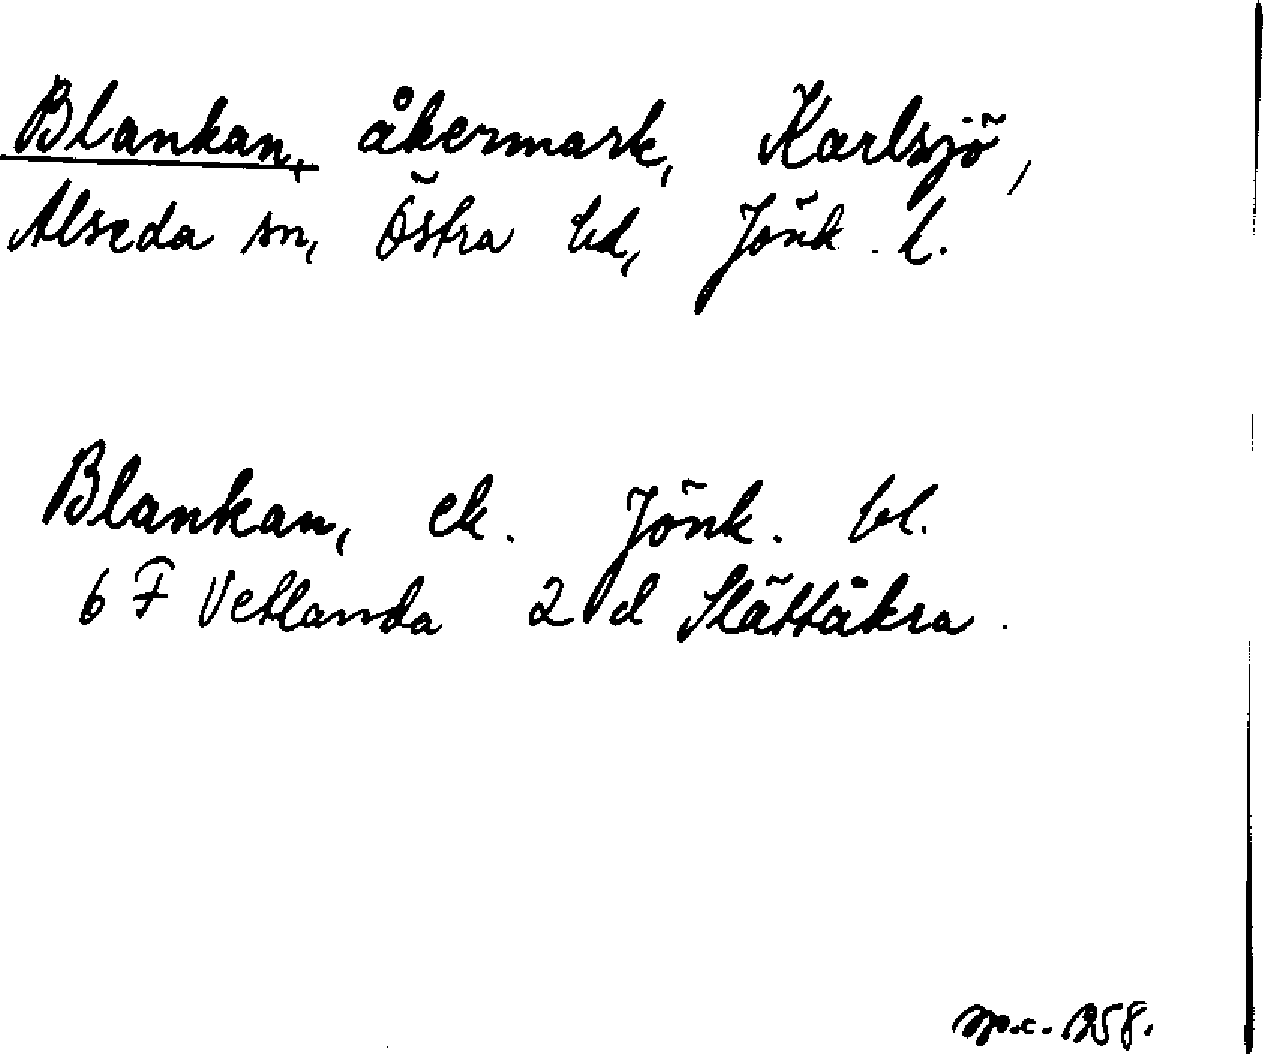 Blankan, åkermark, Karlsjö,
Alseda sn, Östra hd, Jönk. l.
Blankan, ek. Jönk. bl.
6 F Vetlanda 2 d Slättåkra.